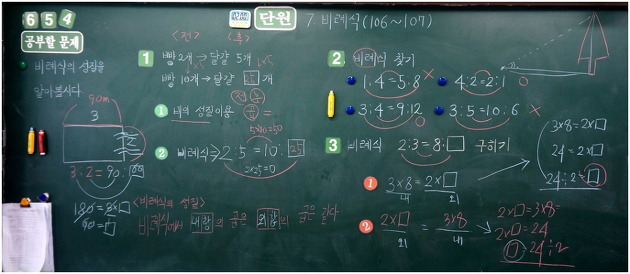 6 5 4
단원 7. 비례식 (106~107)
공부할 문제
비례식의 성질을
알아봅시다
90m
3
3:2=90:
<전> <후>
1 빵 2개→달걀 5개
빵 10개→달걀 25개
1 비의 성질이용
2 비례식⇒ 2:5=10:25
<비례식의 성질>
비례식에서 내항의 곱은 외항의 곱은 같다
2 비례식 찾기
1:4=5:8 × 4:2=2:1 ○
3:4=9:12 ○ 3:5=10:6 ×
3 비례식 2:3=8:□ 구하기
1 3×8=2×□
내 외
2 2×□=3×8
외 내
3×8=2×□
24=2×□
24÷2=□
2×□=3×8=
2×□=24
□=24÷2